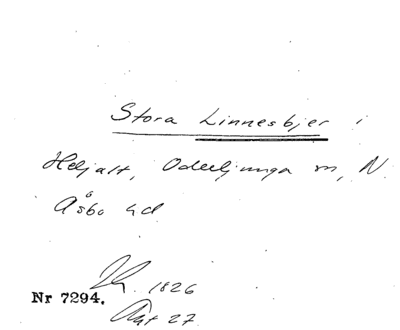 Stora Linnesbjer i
Hdjalt, Oderljunga sn, N.
Åsbo hd
1826
Nr 7294.
Akt 27